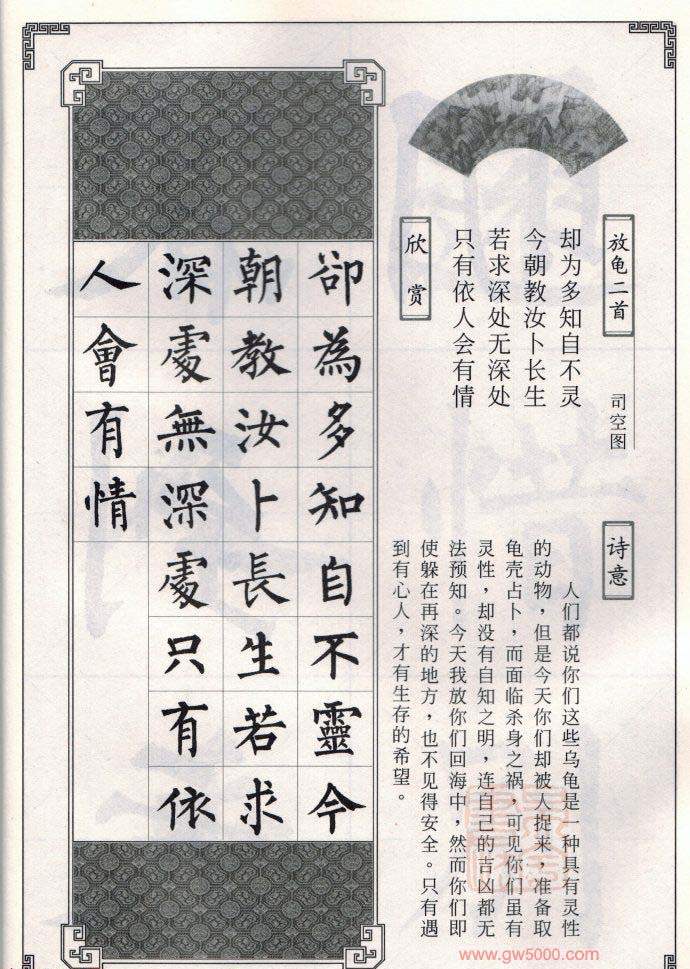 放龟二首
司空图
却为多知自不灵
今朝教汝卜长生
若求深处无深处
只有依人会有情
欣赏
诗意
人们都说你们这些乌龟是一种具有灵性
的动物，但是今天你们却被人捉来，准备取
龟壳占卜，而面临杀身之祸，可见你们虽有
灵性，却没有自知之明，连自己的吉凶都无
法预知。今天我放你们回海中，然而你们即
使躲在再深的地方，也不见得安全。只有遇
到有心人，才有生存的希望。
卻為多知自不靈今
朝教汝卜長生若求
深處無深處只有依
人會有情
www.gw5000.com